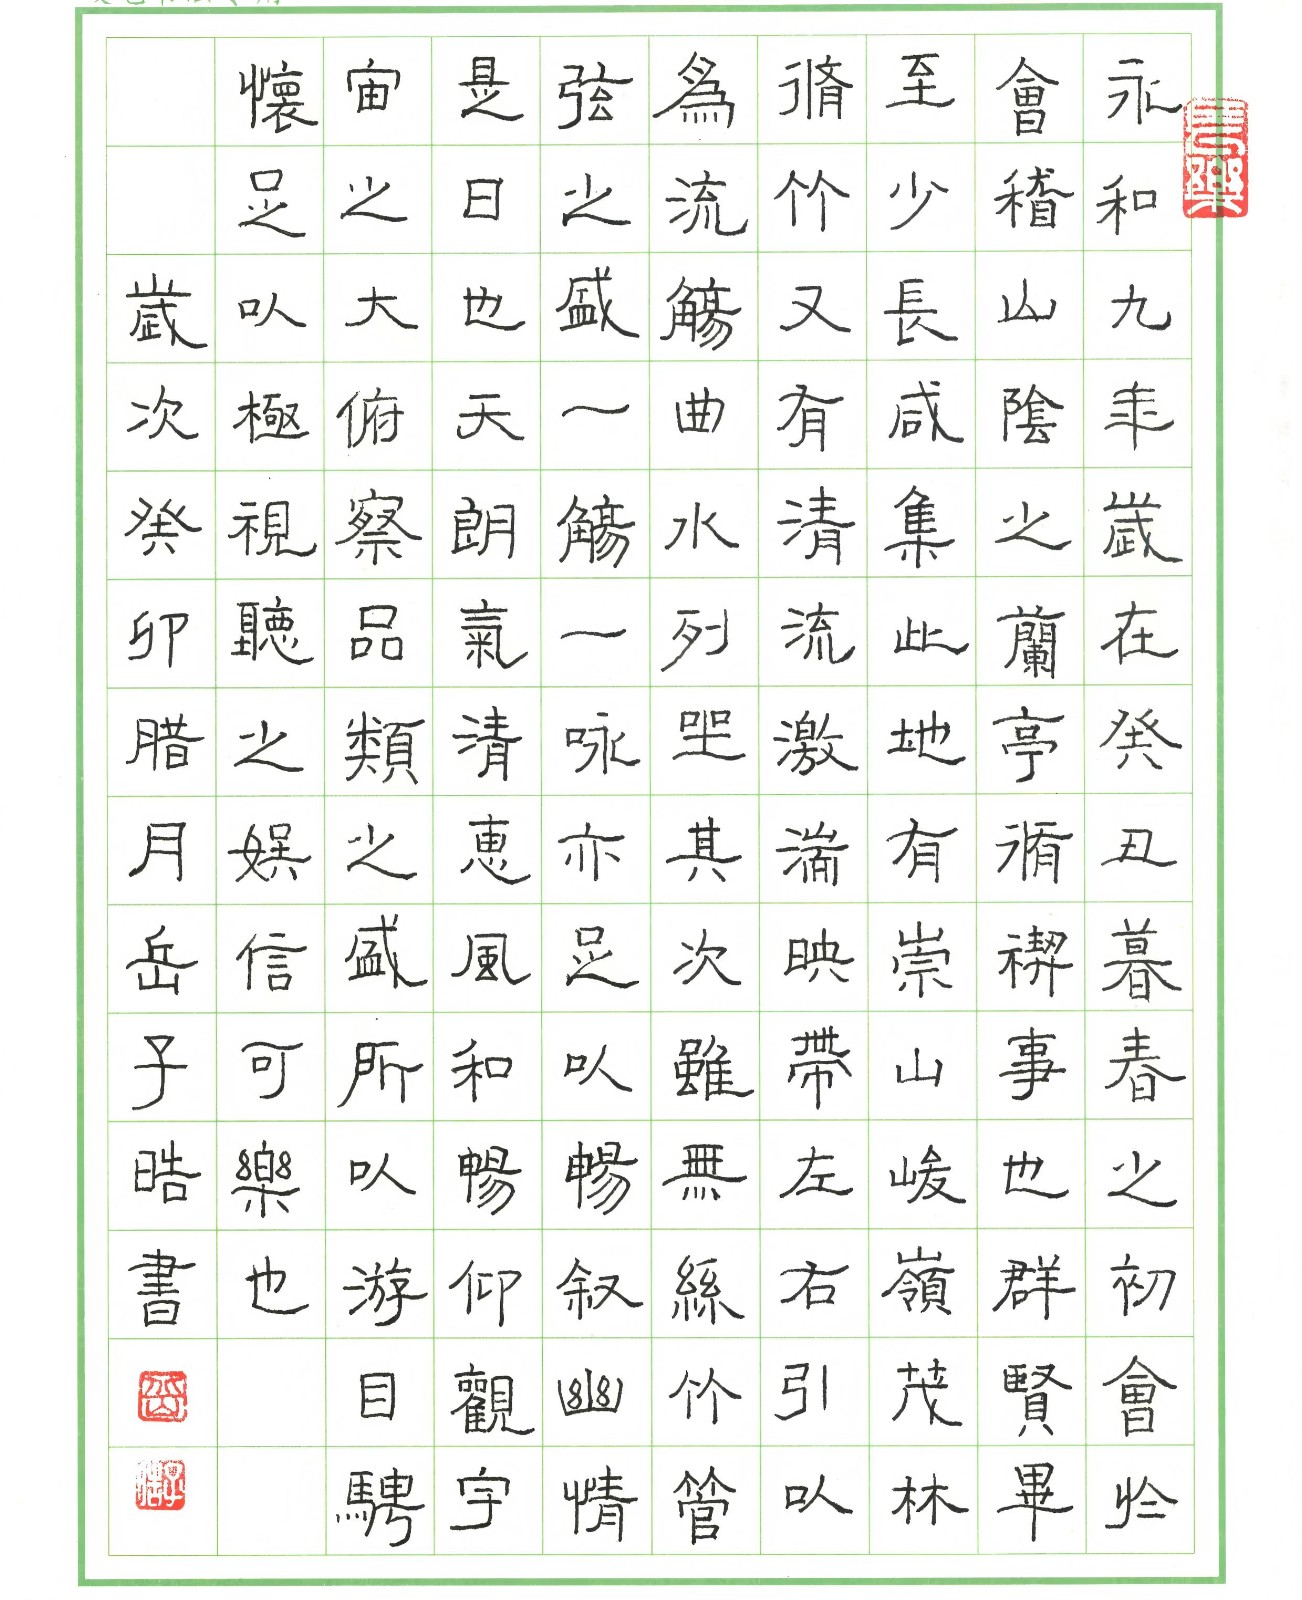 永和九年歲在癸丑暮春之初會於
會稽山陰之蘭亭脩禊事也群賢畢
至少長咸集此地有崇山峻嶺茂林
脩竹又有清流激湍映帶左右引以
為流觴曲水列坐其次雖無絲竹管
弦之盛一觴一咏亦足以暢叙幽情
是日也天朗氣清惠風和暢仰觀宇
宙之大俯察品類之盛所以游目騁
懷足以極視聽之娛信可樂也
歲次癸卯腊月岳子晧書